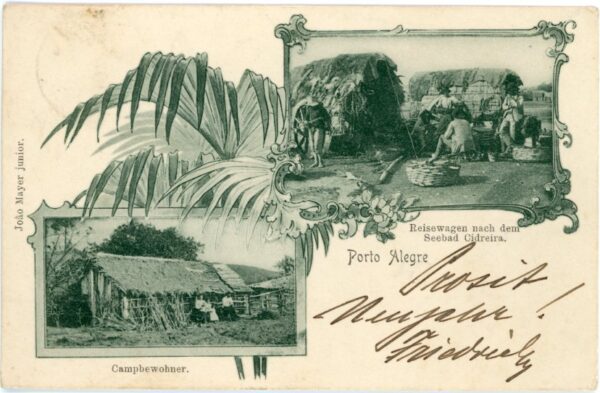 João Mayer junior.
Reisewagen nach dem
Seebad Cidreira.
Porto Alegre
Prosit
Neujahr!
Friedrich
Campbewohner.